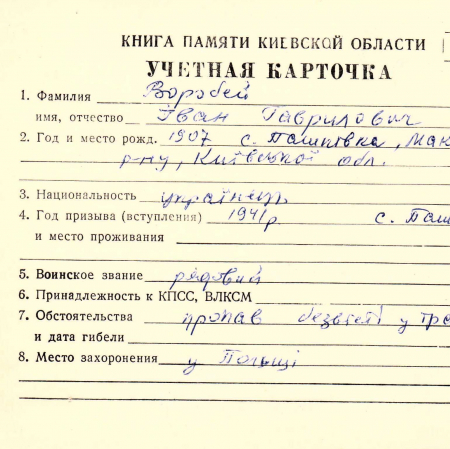 КНИГА ПАМЯТИ КИЕВСКОЙ ОБЛАСТИ
УЧЕТНАЯ КАРТОЧКА
1. Фамилия Воробей
имя, отчество Іван Гаврилович
2. Год и место рожд. 1907 с. Пашківка, Мак
р-ну, Київської обл.
3. Национальность українець
4. Год призыва (вступления) 1941р с. Паш
и место проживания
5. Воинское звание рядовий
6. Принадлежность к КПСС, ВЛКСМ
7. Обстоятельства пропав безвісті у тра
и дата гибели
8. Место захоронения у Польщі